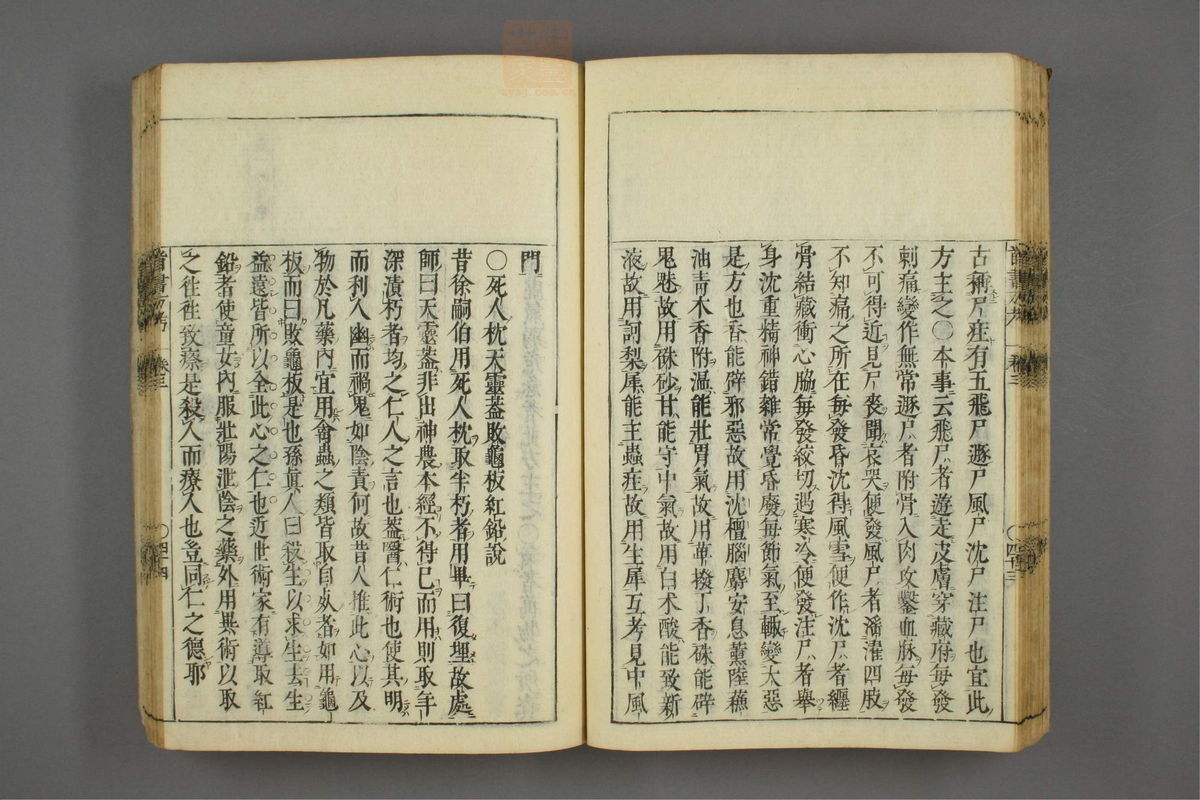 古稱尸疰有五飛尸遯尸風尸沈尸注尸也宜此
方主之〇本事云飛尸者遊走皮膚穿藏府每發
刺痛變作無常遯尸者附骨入肉攻鑿血脉每發
不可得近見尸喪聞哀哭便發風尸者滛濯四肢
不知痛之所在每發昏沈得風雪便作沈尸者纒
骨結藏衝心脇每發絞切遇寒冷便發注尸者舉
身沈重精神錯雜常覺昏廢每節氣至輒變大惡
是方也香能辟邪惡故用沈檀腦麝安息薰陸蘓
油青木香附温能壯胃氣故用蓽撥丁香硃能辟
鬼魅故用硃砂甘能守中氣故用白术酸能致新
液故用訶梨犀能主蟲疰故用生犀互考見中風
門
〇死人枕天靈葢敗龜板紅鉛說
昔徐嗣伯用死人枕取半朽者用畢曰復埋故處
師曰天靈葢非出神農本經不得已而用則取年
深漬朽者均之仁人之言也葢醫仁術也使其明
而利人幽而禍鬼如陰責何故昔人推此心以及
物於凡藥內宜用禽蟲之類皆取自死者如用龜
板而曰敗龜板是也孫真人曰殺生以求生去生
益遠皆所以全此心之仁也近世術家有導取紅
鉛者使童女內服壯陽泄陰之藥外用異術以取
之徃徃致瘵是殺人而療人也豈同仁之德耶
卷三
〇四十三
卷三
〇四十四